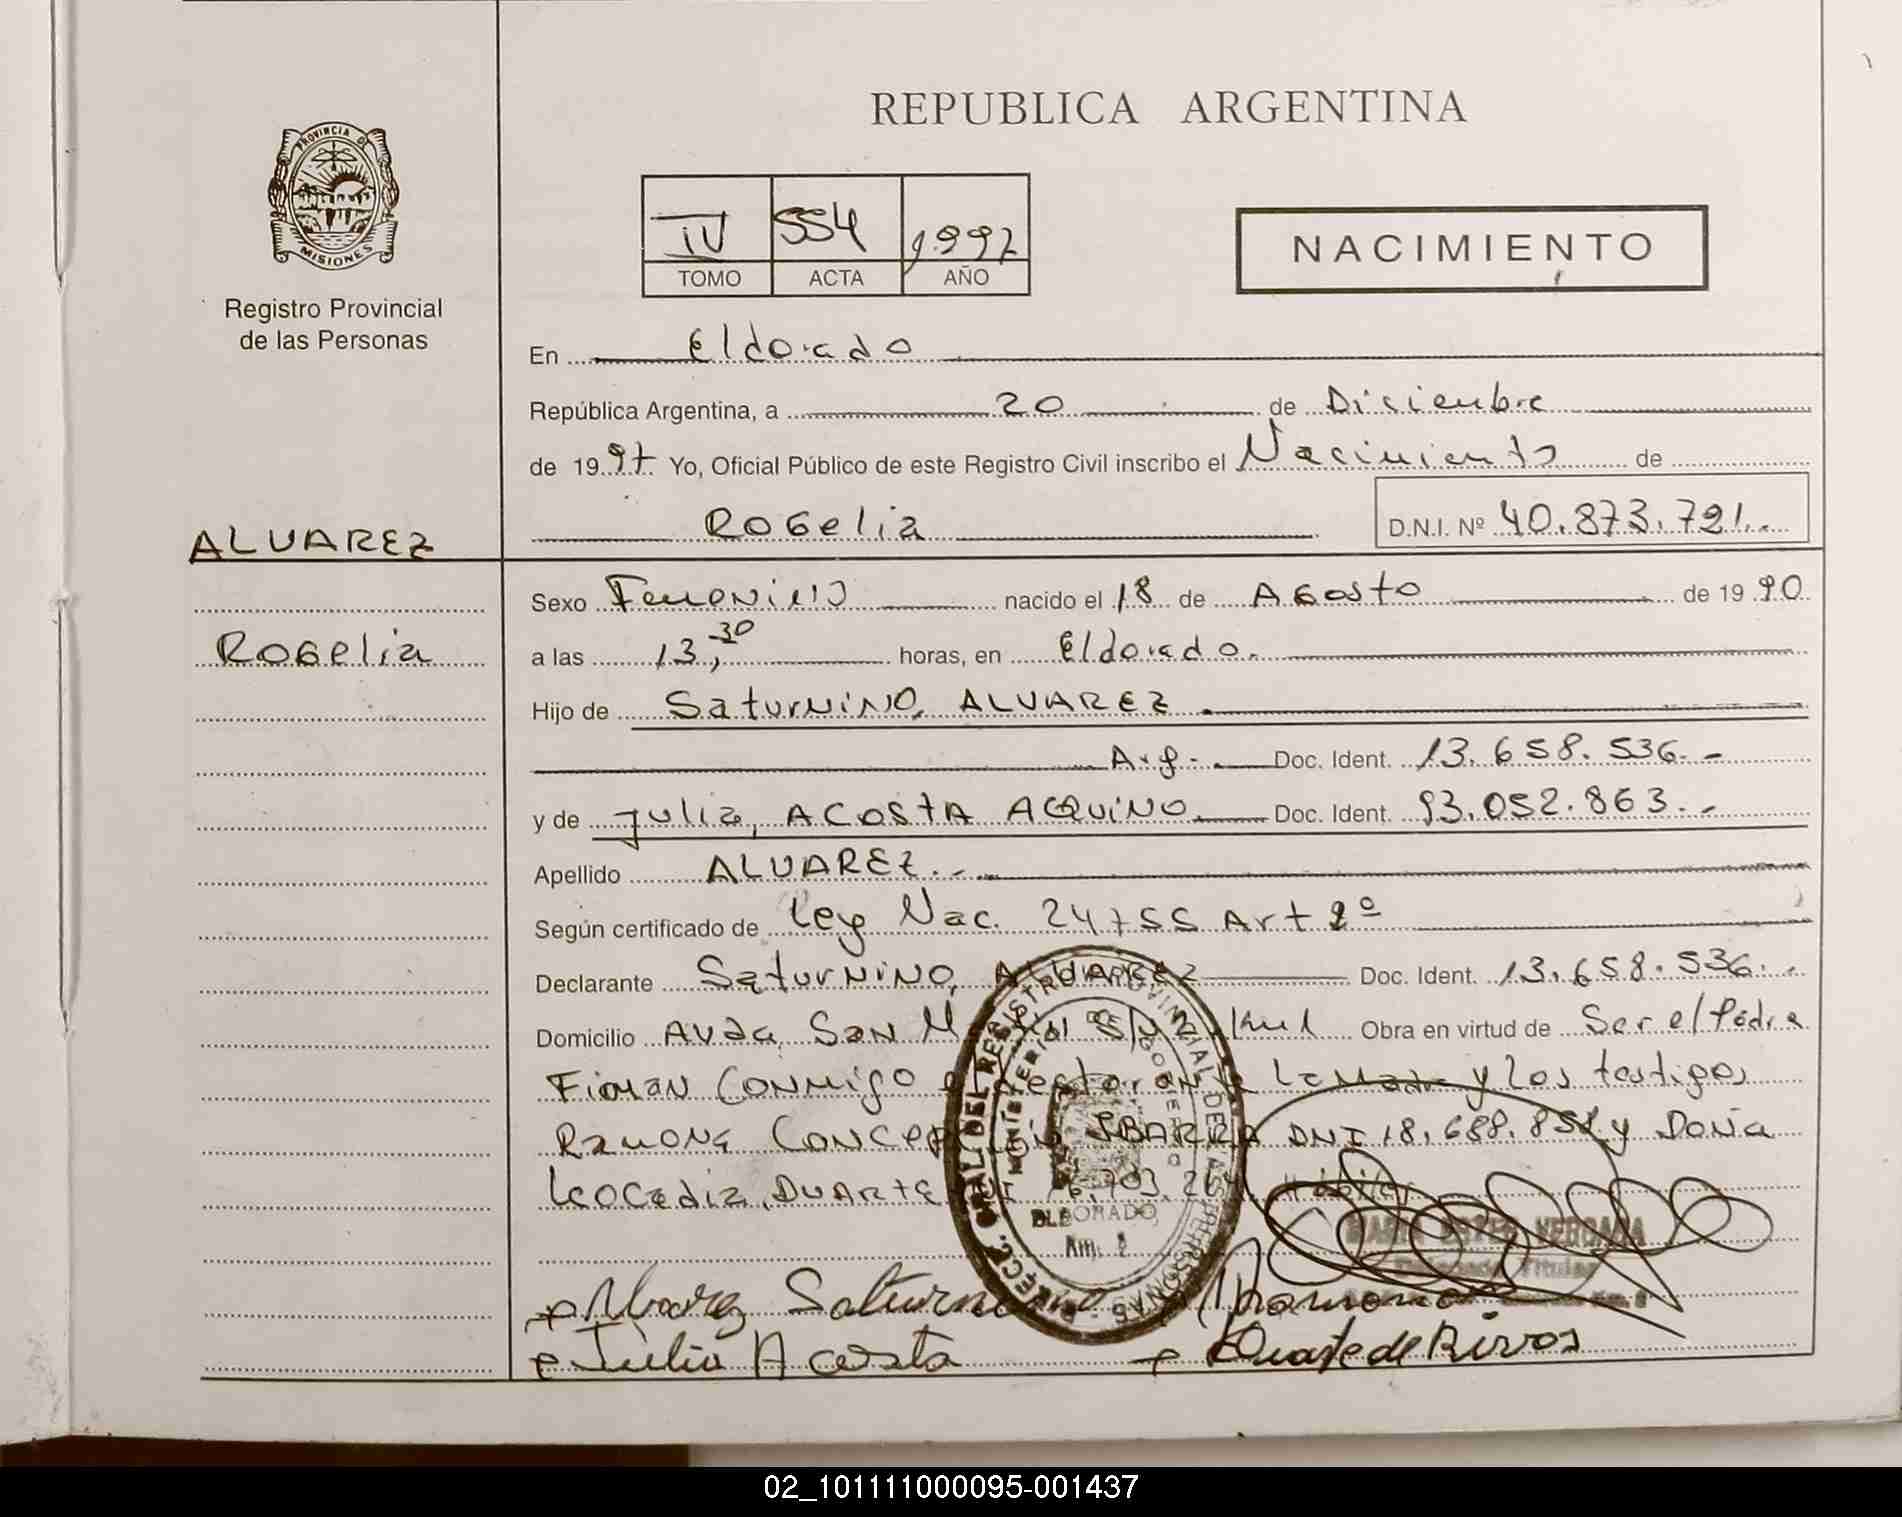 REPUBLICA ARGENTINA
PROVINCIA DE
MISIONES
Registro Provincial
de las Personas
IV 554 1997
TOMO ACTA AÑO
NACIMIENTO
En Eldorado
República Argentina, a 20 de Diciembre
de 1997. Yo, Oficial Público de este Registro Civil inscribo el Nacimiento de
ROGelia D.N.I. Nº 40.873.721.-
ALVAREZ
ROGelia
Sexo Femenino nacido el 18 de AGosto de 1990
a las 13,30 horas, en Eldorado.
Hijo de SaturNiNO, ALVAREZ
Arg. Doc. Ident. 13.658.536.-
y de Julia, ACOSTA ACQUiNO Doc. Ident. 93.052.863.-
Apellido ALVAREZ.-
Según certificado de Ley Nac. 24755 Art 2º
Declarante SaturNiNO, ALVAREZ Doc. Ident. 13.658.536.-
Domicilio AVda, SaN Obra en virtud de Ser el Padre
Firman CONMigo y Los testigos
RamoNa IBARRA DNI 18.688.852 y DoÑa
Leocadia, DUARTE
DIRECC. GRAL. DEL REGISTRO PROVINCIAL DE LAS PERSONAS
MINISTERIO DE GOBIERNO
ELDORADO
Km. 2
MARIA ESTER VERGARA
Delegado Titular
Alvarez Saturnino Ramona
Julia Acosta Duarte de Rivros
02_101111000095-001437